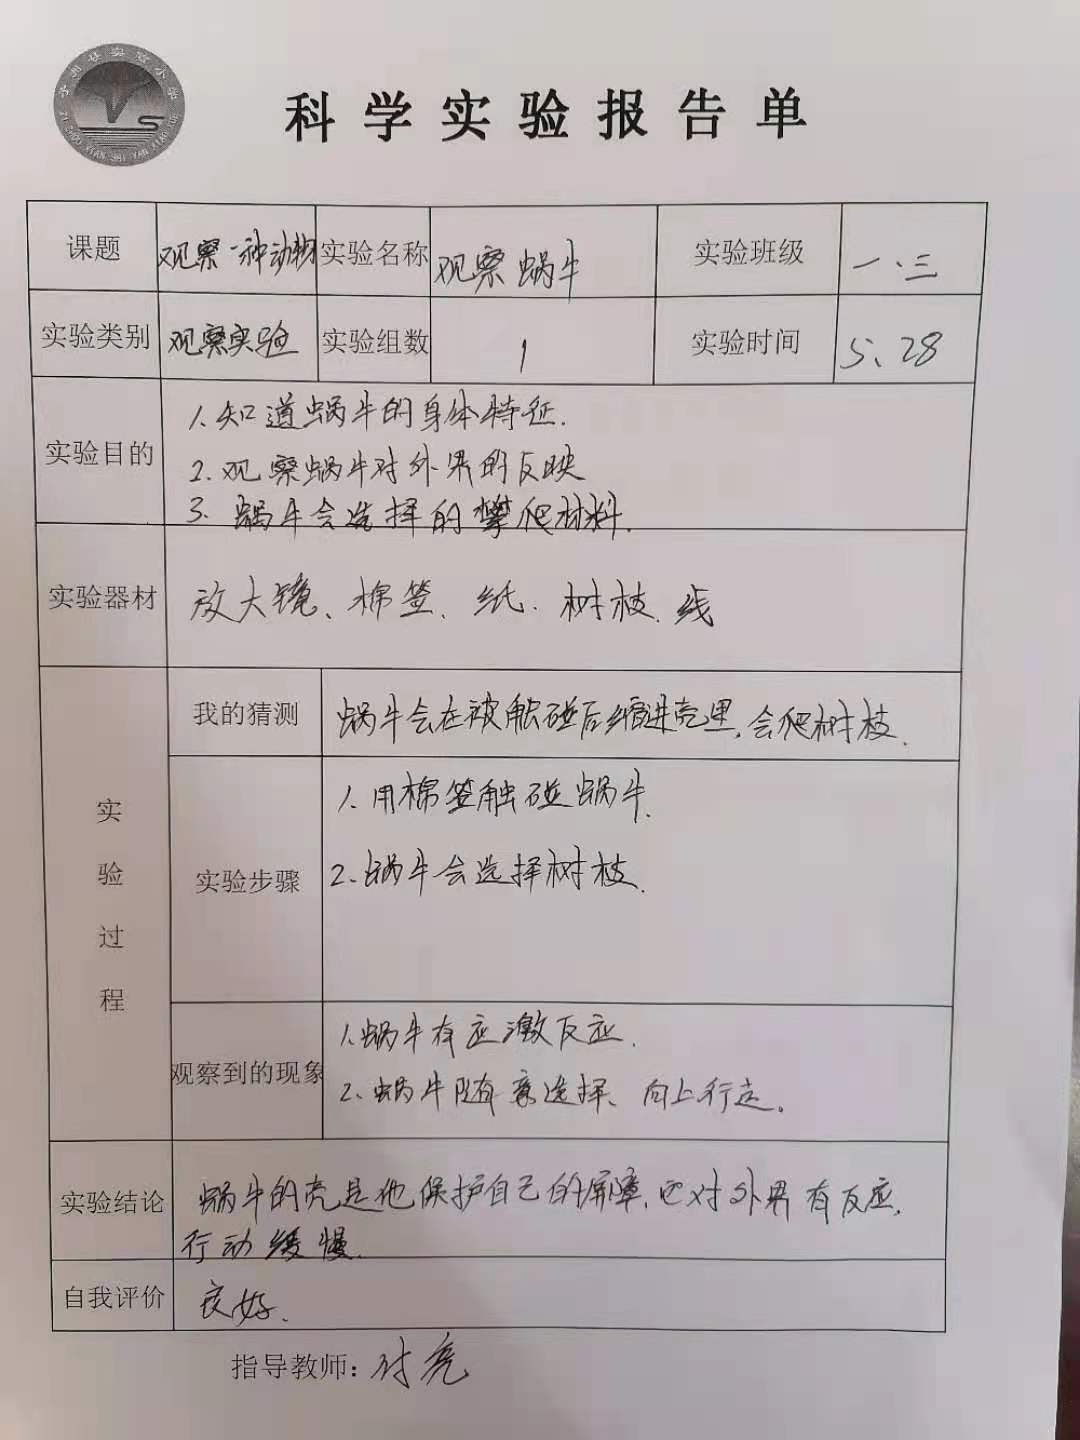 子洲县实验小学
ZI ZHOU XIAN SHI YAN XIAO XUE
科学实验报告单
课题 观察一种动物 实验名称 观察蜗牛 实验班级 一、三
实验类别 观察实验 实验组数 1 实验时间 5、28
实验目的
1、知道蜗牛的身体特征.
2、观察蜗牛对外界的反映
3、蜗牛会选择的攀爬材料.
实验器材 放大镜、棉签、纸、树枝、线
实验过程
我的猜测 蜗牛会在被触碰后缩进壳里,会爬树枝.
实验步骤
1、用棉签触碰蜗牛.
2、蜗牛会选择树枝.
观察到的现象
1、蜗牛有应激反应.
2、蜗牛随意选择、向上行走.
实验结论 蜗牛的壳是他保护自己的屏障,它对外界有反应,
行动缓慢.
自我评价 良好.
指导教师: